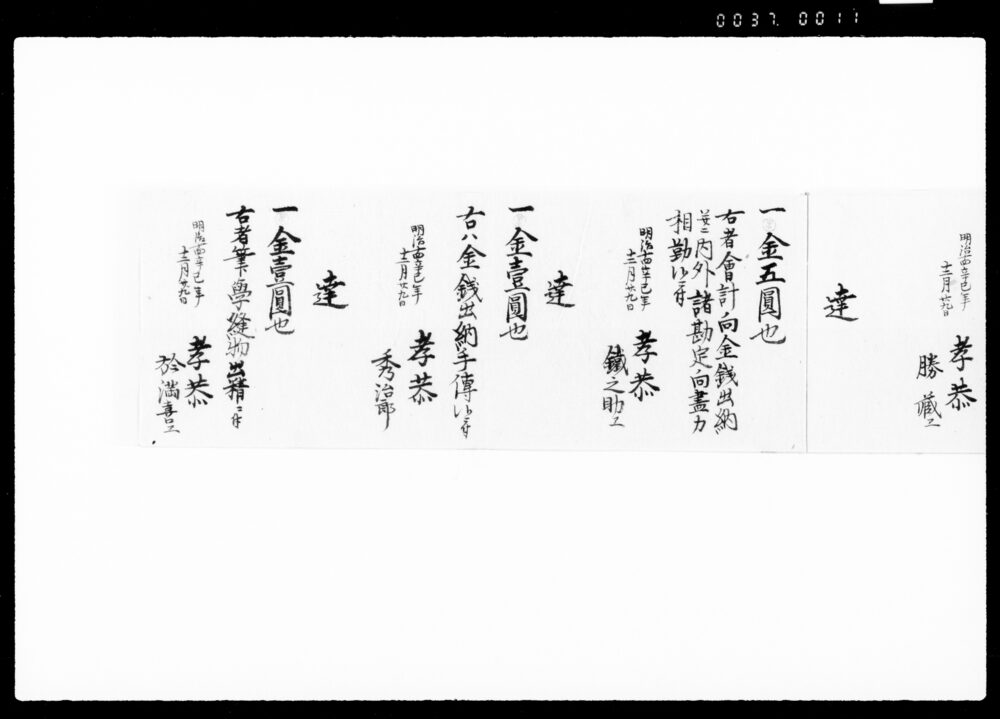 0037 0011
明治十四辛巳年
十二月廿九日
孝恭
勝蔵江
達
一金五圓也
右者會計向金銭出納
并ニ内外諸勘定向盡力
相勤候ニ付
明治十四辛巳年
十二月廿九日
孝恭
鐵之助江
達
一金壹圓也
右ハ金銭出納手傳候ニ付
明治十四辛巳年
十二月廿九日
孝恭
秀治郎
達
一金壹圓也
右者筆學縫物出精ニ付
明治十四辛巳年
十二月廿九日
孝恭
於満喜江